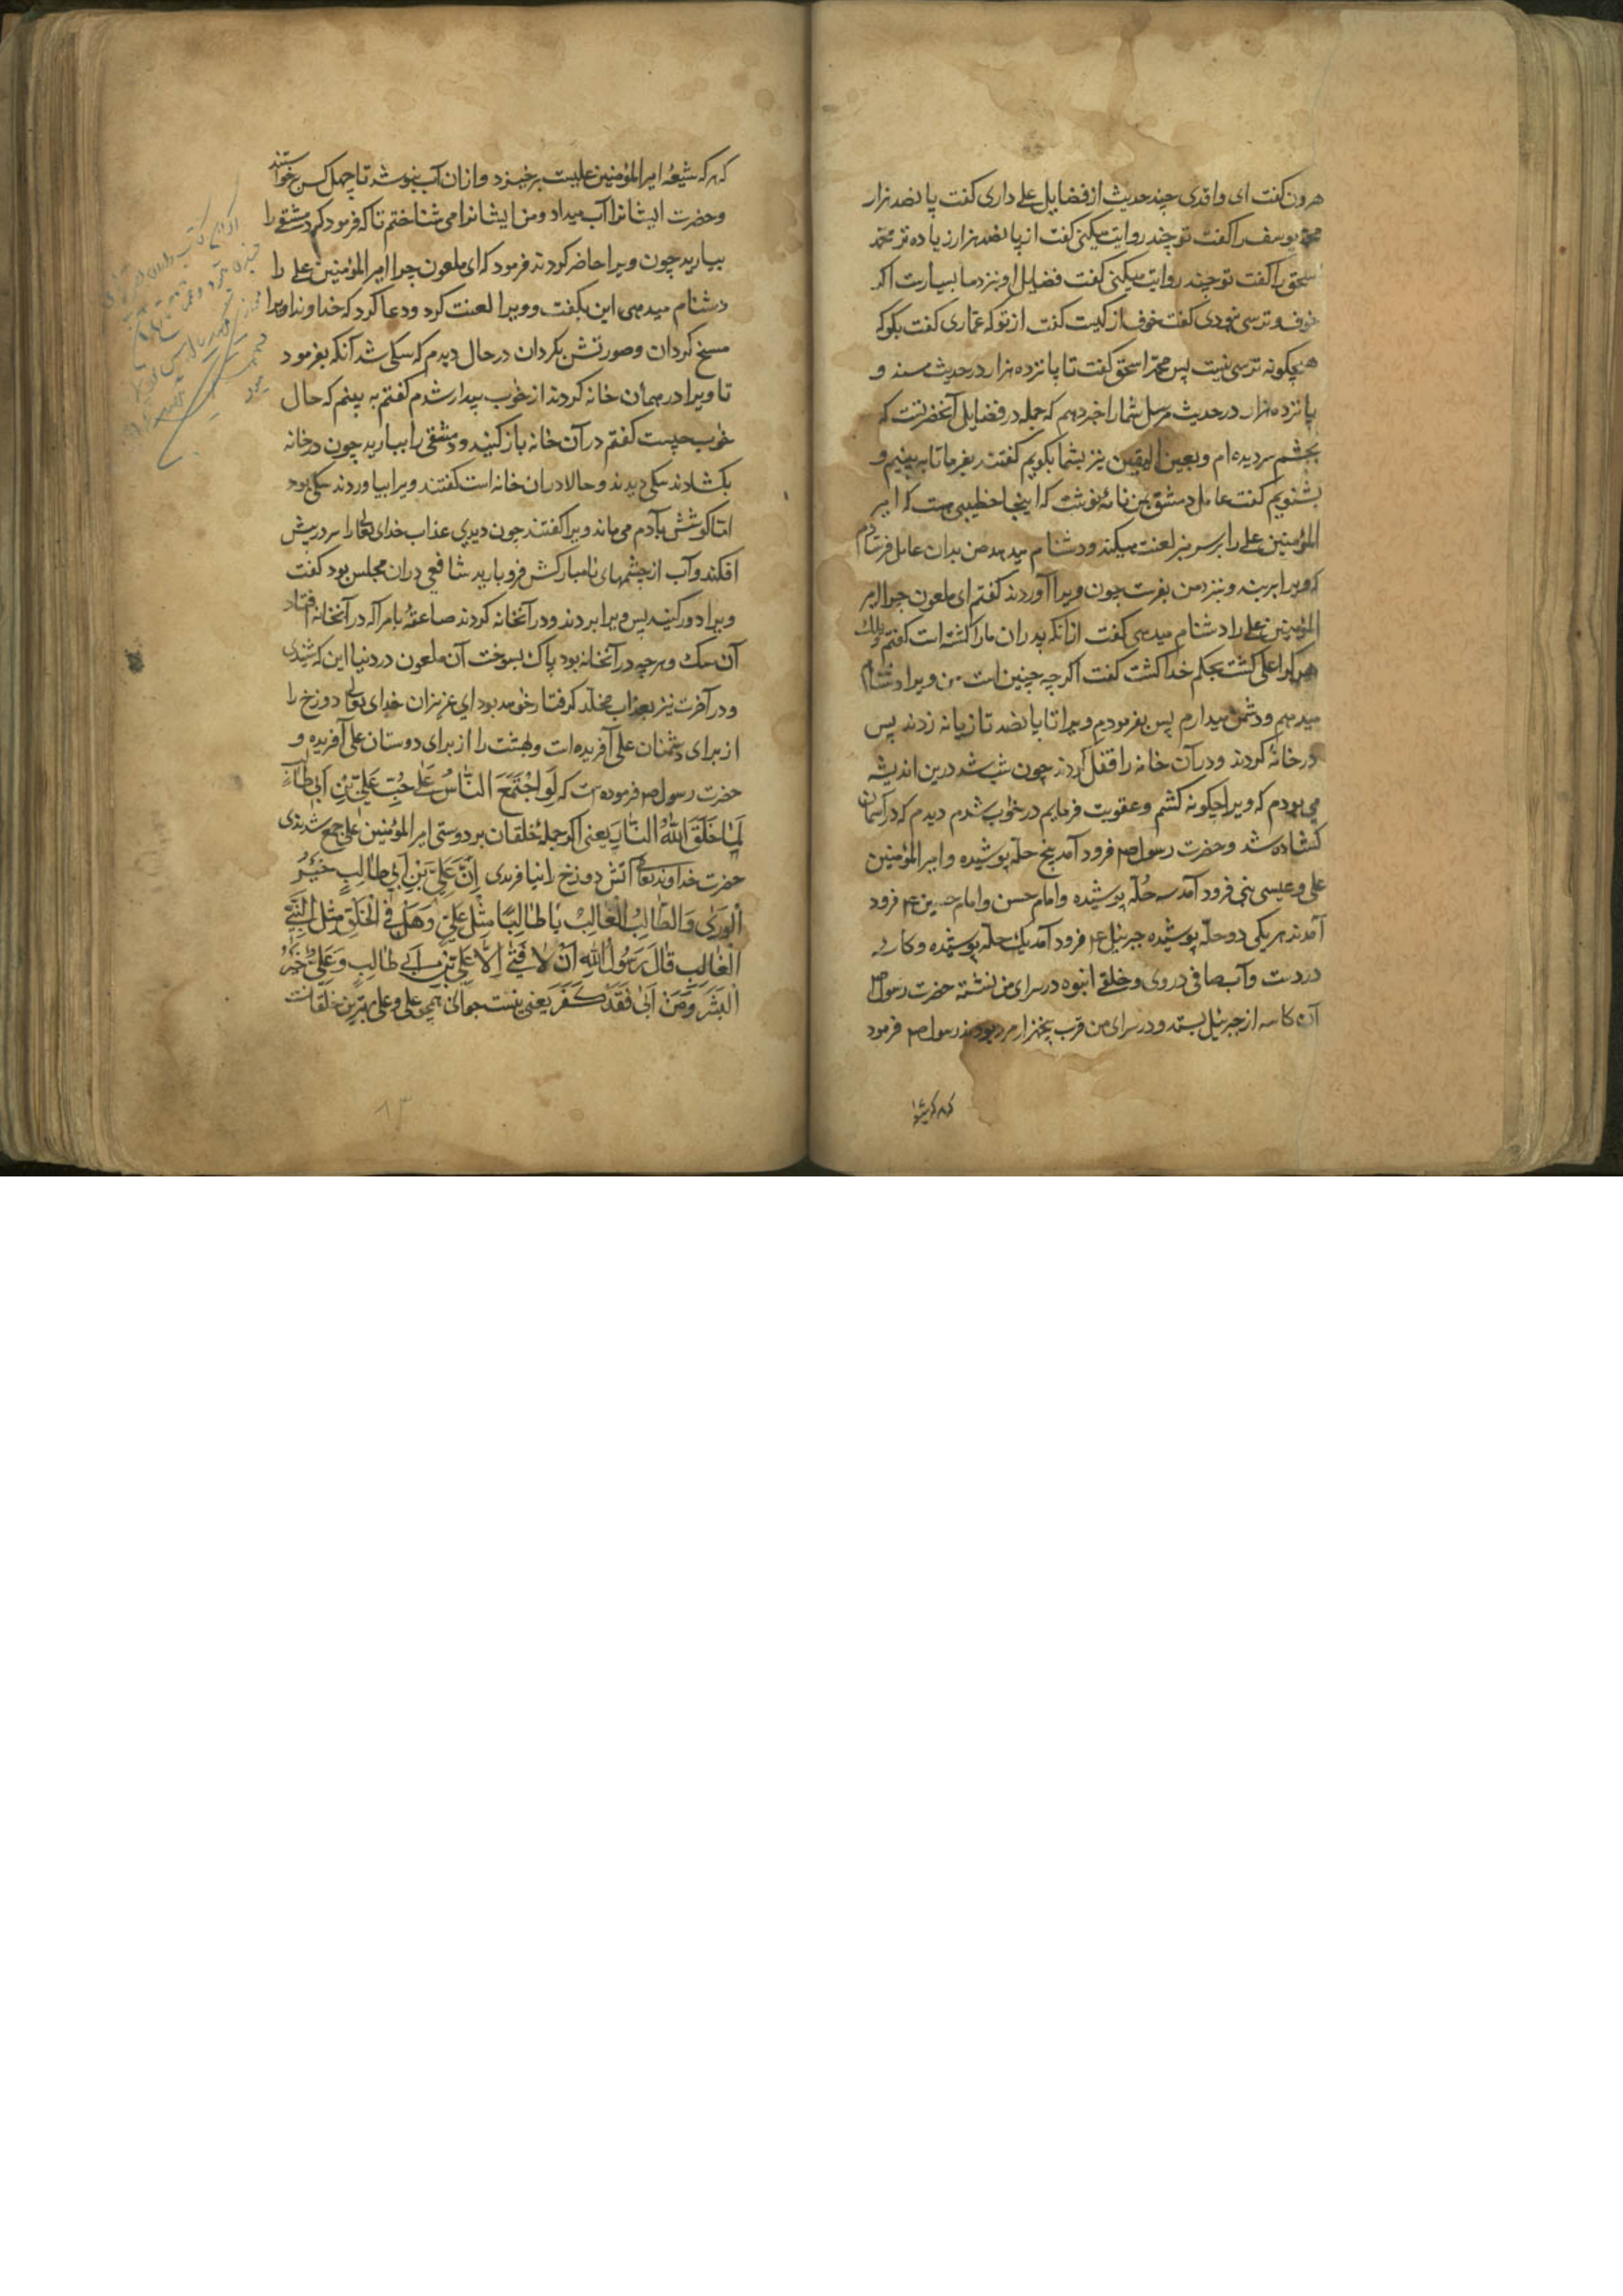 هرون کفت ای واقدی چند حدیث از فضایل علی داری کفت پانصد هزار
محمد یوسف را کفت تو چند روایت میکنی کفت از پانصد هزار زیاده تر محمد
اسحق را کفت تو چند روایت میکنی کفت فضایل او نزد ما بسیارست اکر
خوف و ترسی نبودی کفت خوف از کیست کفت از تو که عماری کفت بکو که
هیچکونه ترسی نیست پس محمد اسحق کفت تا پانزده هزار در حدیث مسند و
پانزده هزار در حدیث مرسل شما را خبر دهم که جمله در فضایل آنحضرتست که
بچشم سر دیده ام و بعین الیقین نیز بشما بکویم کفتند بفرما تا به بینیم و
بشنویم کفت عامل دمشق بمن نامهٔ نوشت که اینجا خطیبی هست که امیر
المؤمنین علی را بر سر منبر لعنت میکند و دشنام میدهد من بدان عامل فرستادم
که ویرا بربند و بنزد من بفرست چون ویرا آوردند کفتم ای ملعون چرا امیر
المؤمنین علی را دشنام میدهی کفت از آنکه پدران ما را کشته است کفتم ویلک
هر کرا علی کشت بحکم خدا کشت کفت اکر چه چنین است من ویرا دشنام
میدهم و دشمن میدارم پس بفرمودم ویرا تا پانصد تازیانه زدند پس
در خانهٔ کردند و در آن خانه را قفل کردند چون شب شد درین اندیشه
می بودم که ویرا چکونه کشم و عقوبت فرمایم در خواب شدم دیدم که در آسمان
کشاده شد و حضرت رسول ص فرود آمد پنج حله پوشیده و امیر المؤمنین
علی و عیسی نبی فرود آمد سه حُله پوشیده و امام حسن و امام حسین ع فرود
آمدند هر یکی دو حله پوشیده جبرئیل ع فرود آمد یک حله پوشیده و کاسه
در دست و آب صافی در وی و خلقی انبوه در سرای من نشسته حضرت رسول ص
آن کاسه از جبرئیل بستد و در سرای من قرب پنجهزار مرد بودند رسول ص فرمود
که هر که شیعهٔ
که هر که شیعهٔ امیر المؤمنین علیست برخیزد و از آن آب بنوشد تا چهل کس برخواستند
و حضرت ایشانرا آب میداد و من ایشانرا می شناختم تا که فرمود که دمشقی را
بیارید چون ویرا حاضر کردند فرمود که ای ملعون چرا امیر المؤمنین علی را
دشنام میدهی این بکفت و ویرا لعنت کرد و دعا کرد که خداوندا ویرا
مسخ کردان و صورتش بکردان در حال دیدم که سکی شد آنکه بفرمود
تا ویرا در همان خانه کردند از خواب بیدار شدم کفتم به بینم که حال
خواب چیست کفتم در آن خانه باز کنید و دمشقی را بیارید چون در خانه
بکشادند سکی دیدند و حالا در آن خانه است کفتند ویرا بیاوردند سکی بود
اما کوشش بآدم می ماند ویرا کفتند چون دیدی عذاب خدای تعالی را سر در پیش
افکند و آب از چشمهای نامبارکش فرو بارید شافعی در آن مجلس بود کفت
ویرا دور کنید پس ویرا بردند و در آنخانه کردند صاعقهٔ بامر اله در آنخانه افتاد
آن سک و هر چه در آنخانه بود پاک بسوخت آن ملعون در دنیا این که شنیدی
و در آخرت نیز بعذاب مخلد کرفتار خواهد بود ای عزیزان خدای تعالی دوزخ را
از برای دشمنان علی آفریده است و بهشت را از برای دوستان علی آفریده و
حضرت رسول ص فرموده است که لَوِ اجْتَمَعَ النَّاسُ عَلی حُبِّ عَلِیِّ بْنِ اَبی طالِبٍ
لَمَا خَلَقَ اللهُ النَّارَ یعنی اکر جملهٔ خلقان بر دوستی امیر المؤمنین علی جمع شدندی
حضرت خداوند تعالی آتش دوزخ را نیافریدی اِنَّ عَلِیَّ بْنَ اَبی طالِبٍ خَیْرُ
الْوَریٰ وَالطَّالِبُ الْغالِبُ یا طالِبًا مِثْلَ عَلِیٍّ وَهَلْ فِی الْخَلْقِ مِثْلُ النَّبِیِّ
الْغالِبِ قالَ رَسُولُ اللهِ اَنْ لا فَتیٰ اِلاّ عَلِیُّ بْنُ اَبی طالِبٍ وَعَلِیٌّ خَیْرُ
الْبَشَرِ وَمَنْ اَبیٰ فَقَدْ کَفَرَ یعنی نیست جوانی همچو علی و علی بهترین خلقانست
۸۳